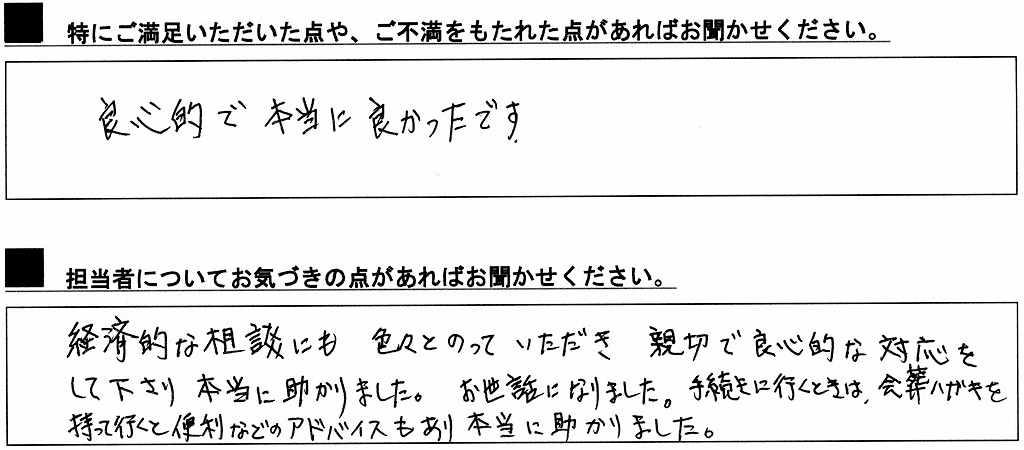 特にご満足いただいた点や、ご不満をもたれた点があればお聞かせください。
良心的で 本当に 良かったです
担当者についてお気づきの点があればお聞かせください。
経済的な相談にも 色々とのって いただき 親切で良心的な 対応を
して下さり 本当に助かりました。 お世話になりました。手続きに行くときは、会葬ハガキを
持って行くと便利などのアドバイスもあり 本当に助かりました。